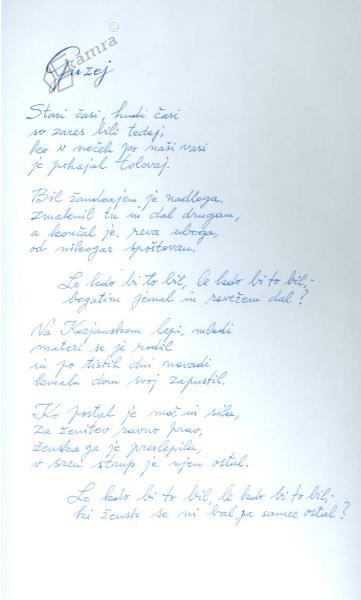 Kamra
©
Guzej
Stari časi, hudi časi
so zares bili tedaj,
ko v nočeh po naši vasi
je pohajal tolovaj.
Bil žandarjem je nadloga,
zmaknil tu in dal drugam,
a končal je, reva uboga,
od nikogar spoštovan.
Le kdo bi to bil, le kdo bi to bil,-
bogatim jemal in revežem dal?
Na Kozjanskem lepi, mladi
materi se je rodil
in po tistih dni navadi
kmalu dom svoj zapustil.
Ko postal je moč in sila,
za ženitev ravno prav,
ženska ga je preslepila,
v srcu strup je njem ostal.
Le kdo bi to bil, le kdo bi to bil,-
ki žensk se ni bal pa samec ostal?